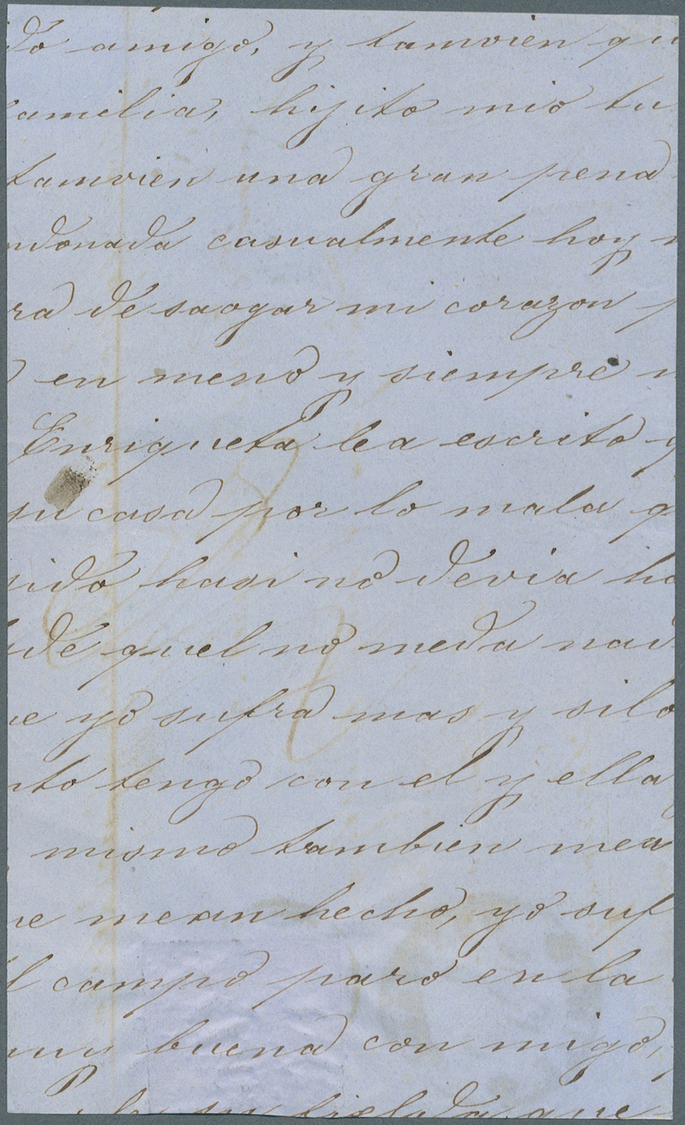 do amigo, y tamvien qu
amilia, hijito mio tu
tamvien una gran pena
ndonada casualmente hoy
ra desaogar mi corazon p
en meno y siempre
Enriqueta lea escrito q
su casa por lo mala q
sido hasi no devia ha
de quel no meda nad
ue yo sufra mas y silo
nto tengo con el y ella
mismo tambien mea
ue mean hecho, yo suf
l campo paro en la
uy buena con migo,